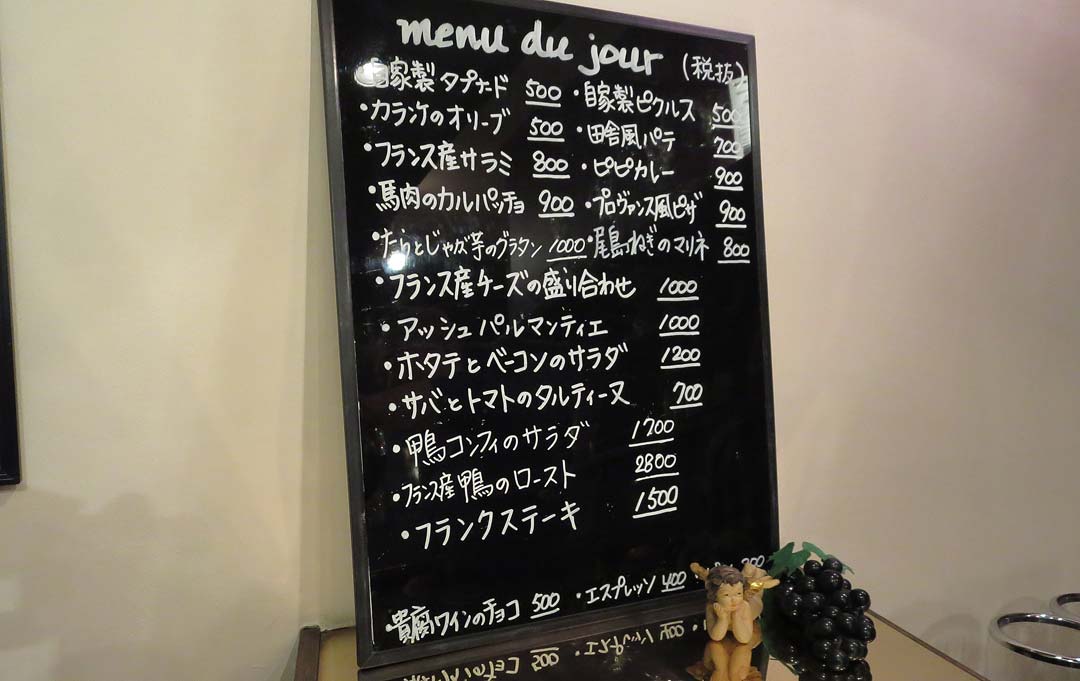 menu du jour (税抜)
・自家製タプナード 500 ・自家製ピクルス 500
・カランケのオリーブ 500 ・田舎風パテ 700
・フランス産サラミ 800 ・ピピカレー 900
・馬肉のカルパッチョ 900 ・プロヴァンス風ピザ 900
・たらとじゃが芋のグラタン 1000 ・尾島ねぎのマリネ 800
・フランス産チーズの盛り合わせ 1000
・アッシュパルマンティエ 1000
・ホタテとベーコンのサラダ 1200
・サバとトマトのタルティーヌ 700
・鴨コンフィのサラダ 1200
・フランス産鴨のロースト 2800
・フランクステーキ 1500
・貴腐ワインのチョコ 500 ・エスプレッソ 400